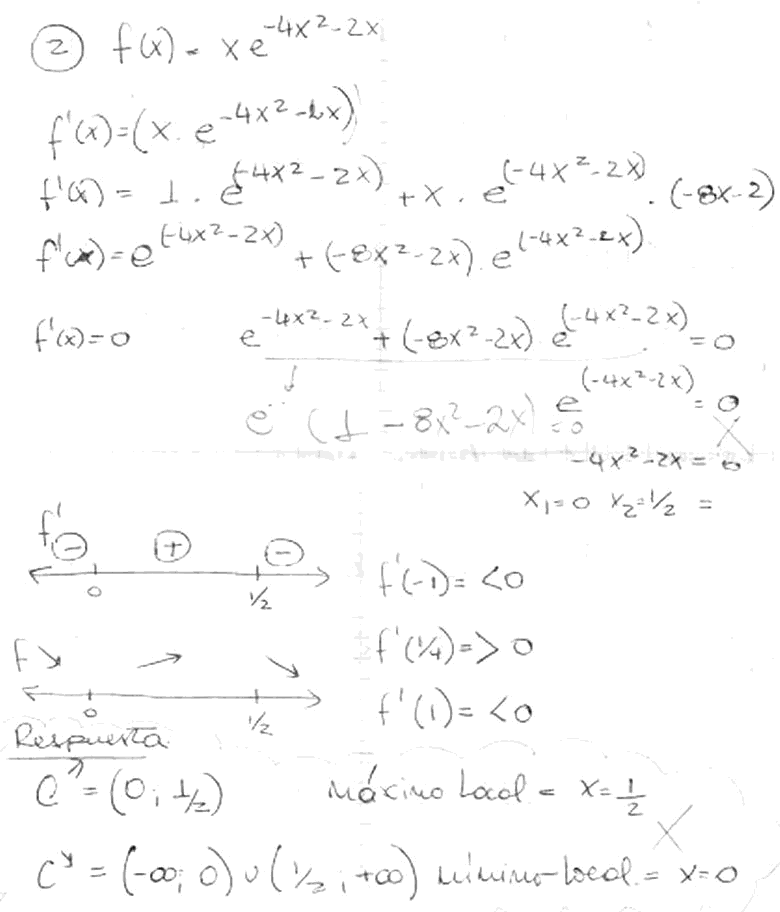 ② f(x) = x e^{-4x²-2x}
f'(x) = (x. e^{-4x²-2x})'
f'(x) = 1 . e^{(-4x²-2x)} + x . e^{(-4x²-2x)} . (-8x-2)
f'(x) = e^{(-4x²-2x)} + (-8x²-2x). e^{(-4x²-2x)}
f'(x)=0 e^{-4x²-2x} + (-8x²-2x) e^{(-4x²-2x)} = 0
e^{..} (1 - 8x²-2x) = 0 e^{(-4x²-2x)} = 0
-4x²-2x = 0
x₁=0 x₂=1/2 =
f' ⊖ ⊕ ⊖
0 1/2
f'(-1)= <0
f ↘ ↗ ↘
f'(1/4)=> 0
0 1/2
f'(1)= <0
Respuesta
C↗ = (0; 1/2) máximo local = x=1/2
C↘ = (-∞; 0) ∪ (1/2; +∞) mínimo local = x=0